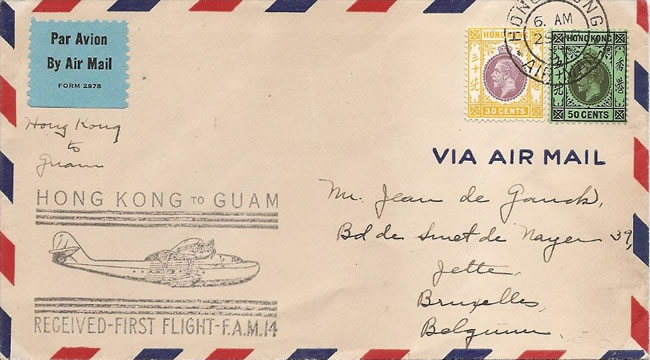 Par Avion
By Air Mail
FORM 2978
Hong Kong
to
Guam
HONG KONG
30 CENTS
HONG KONG
50 CENTS
香港
HONG KONG
6. AM
29
AIR
VIA AIR MAIL
HONG KONG TO GUAM
RECEIVED-FIRST FLIGHT-F.A.M.14
Mr. Jean de Ganck,
Bd de Smet de Nayer 39
Jette,
Bruxelles,
Belgium